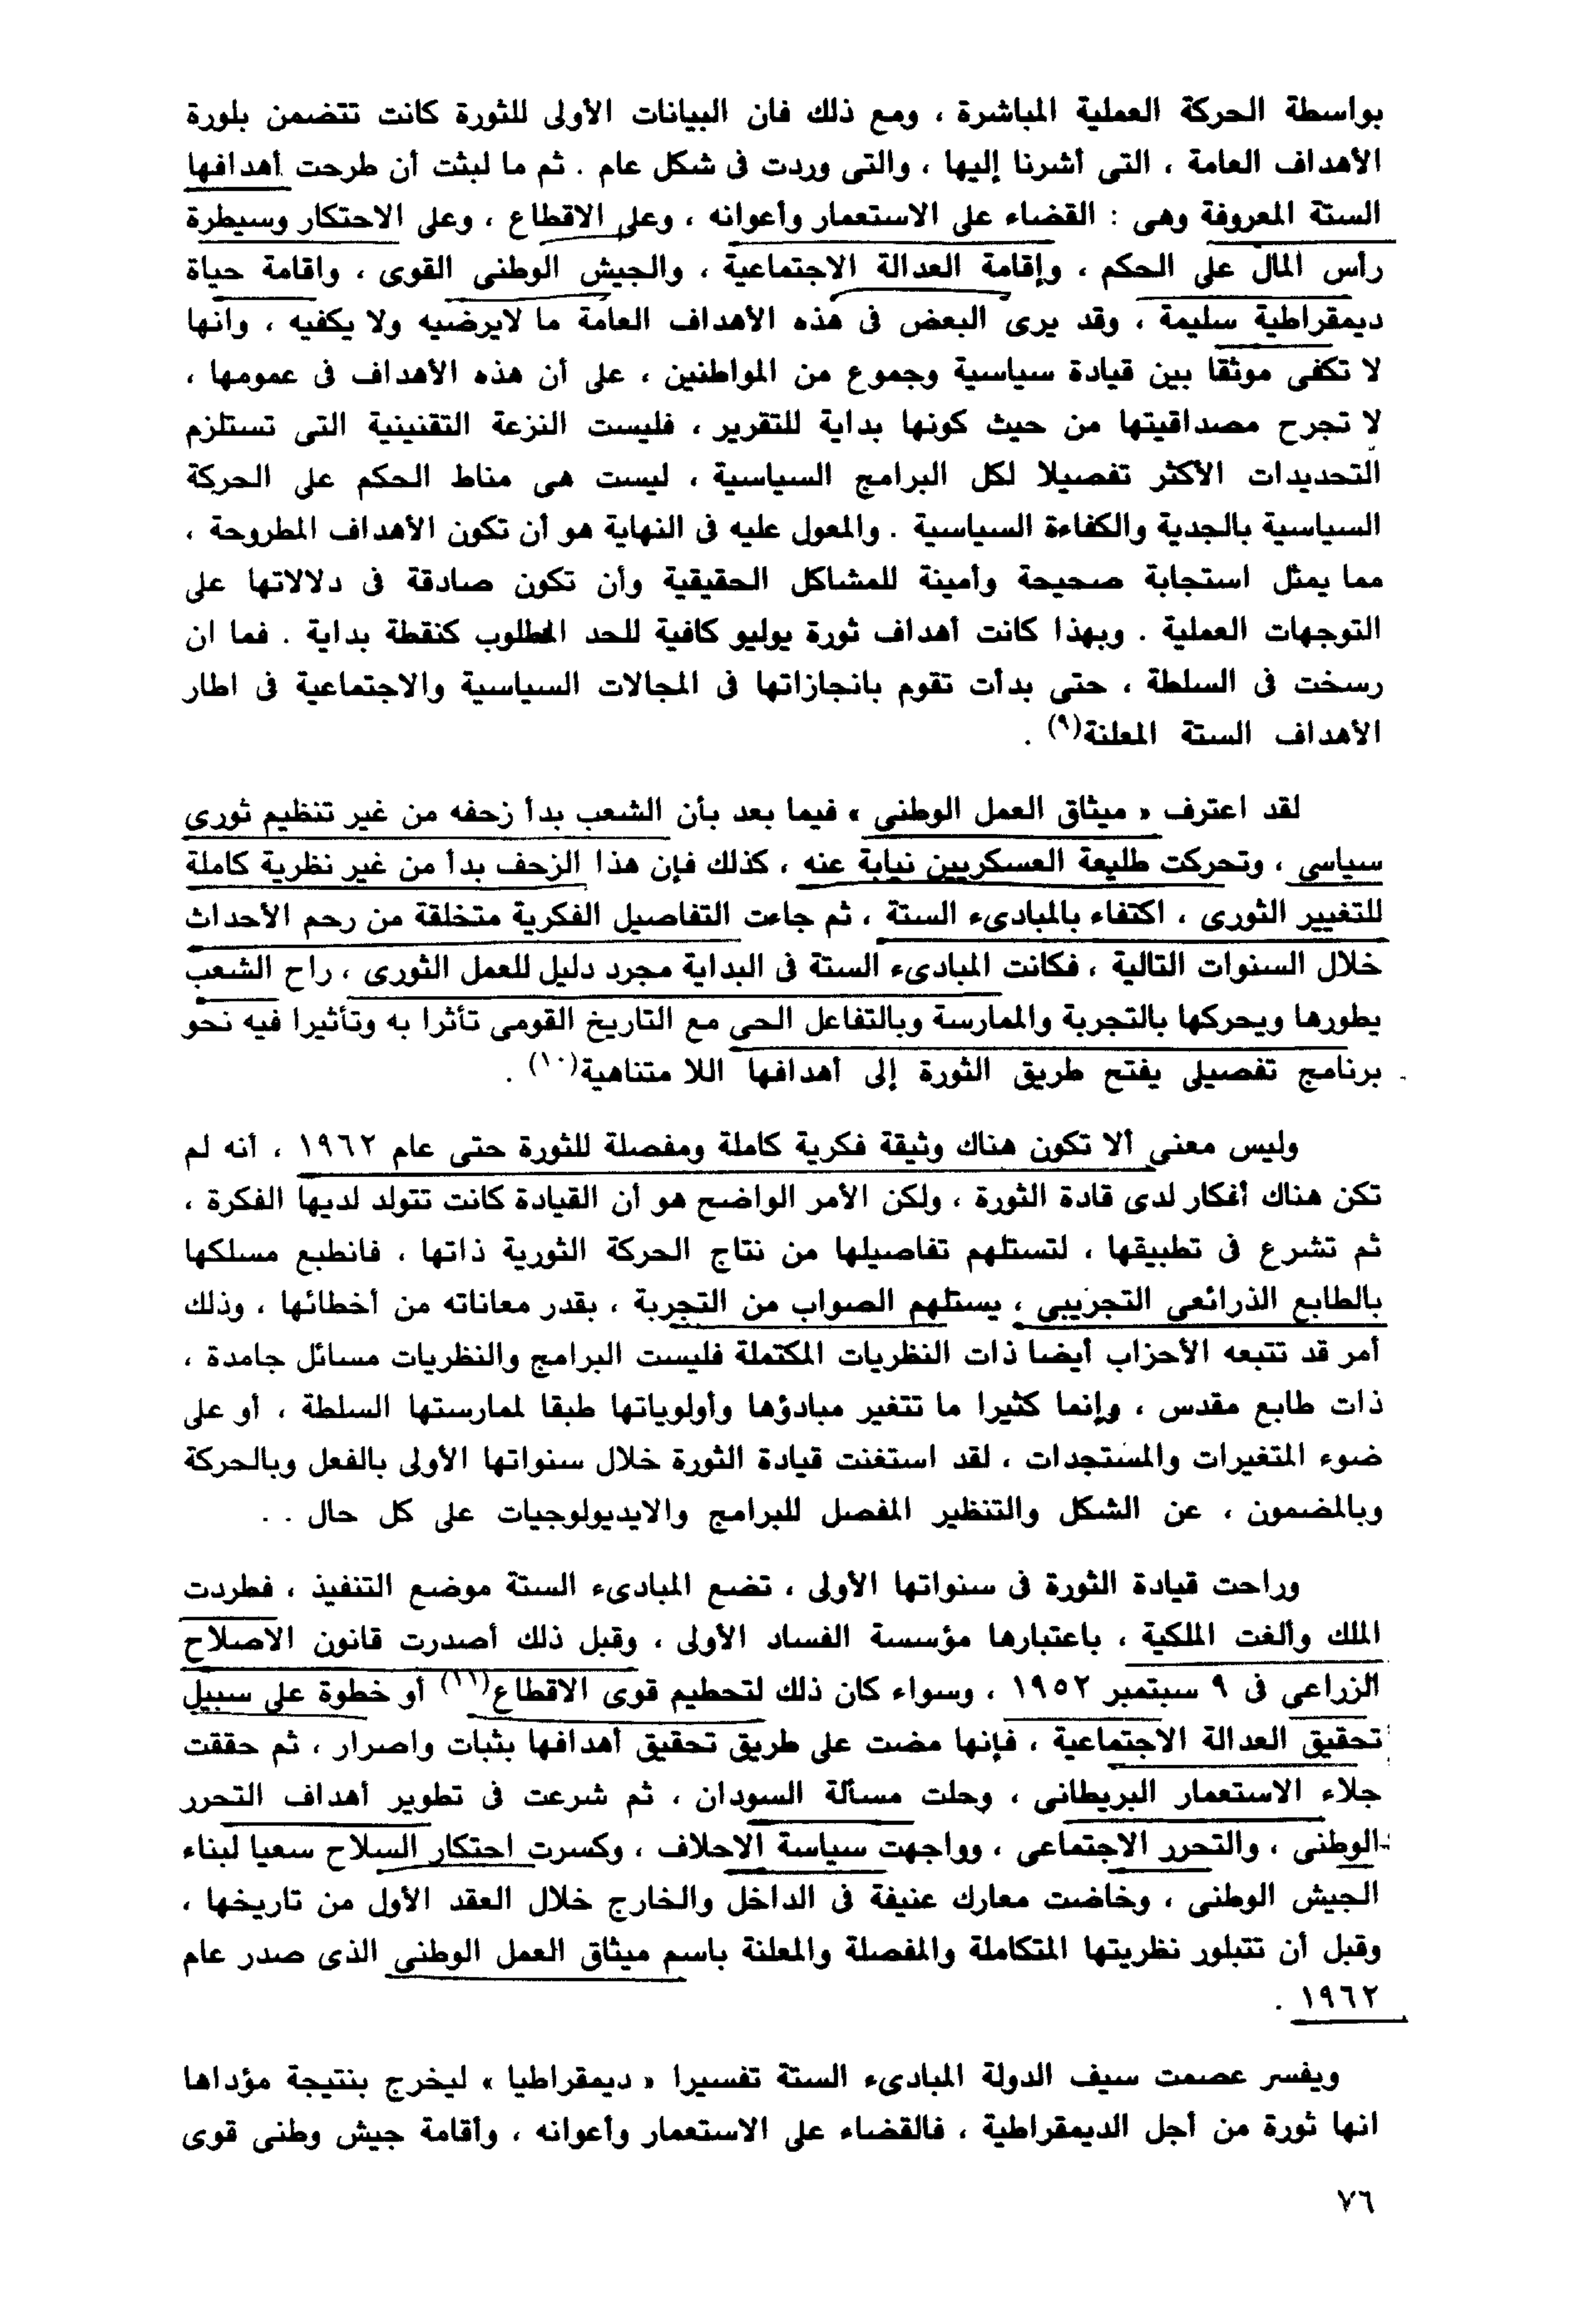 بواسطة الحركة العملية المباشرة ، ومع ذلك فان البيانات الأولى للثورة كانت تتضمن بلورة
الأهداف العامة ، التى أشرنا إليها ، والتى وردت فى شكل عام . ثم ما لبثت أن طرحت أهدافها
الستة المعروفة وهى : القضاء على الاستعمار وأعوانه ، وعلى الاقطاع ، وعلى الاحتكار وسيطرة
رأس المال على الحكم ، وإقامة العدالة الاجتماعية ، والجيش الوطنى القوى ، واقامة حياة
ديمقراطية سليمة ، وقد يرى البعض فى هذه الأهداف العامة ما لايرضيه ولا يكفيه ، وانها
لا تكفى موثقا بين قيادة سياسية وجموع من المواطنين ، على أن هذه الأهداف فى عمومها ،
لا تجرح مصداقيتها من حيث كونها بداية للتقرير ، فليست النزعة التقنينية التى تستلزم
التحديدات الأكثر تفصيلا لكل البرامج السياسية ، ليست هى مناط الحكم على الحركة
السياسية بالجدية والكفاءة السياسية . والمعول عليه فى النهاية هو أن تكون الأهداف المطروحة ،
مما يمثل استجابة صحيحة وأمينة للمشاكل الحقيقية وأن تكون صادقة فى دلالاتها على
التوجهات العملية . وبهذا كانت أهداف ثورة يوليو كافية للحد المطلوب كنقطة بداية . فما ان
رسخت فى السلطة ، حتى بدأت تقوم بانجازاتها فى المجالات السياسية والاجتماعية فى اطار
الأهداف الستة المعلنة(٩) .
لقد اعترف « ميثاق العمل الوطنى » فيما بعد بأن الشعب بدأ زحفه من غير تنظيم ثورى
سياسى ، وتحركت طليعة العسكريين نيابة عنه ، كذلك فإن هذا الزحف بدأ من غير نظرية كاملة
للتغيير الثورى ، اكتفاء بالمبادىء الستة ، ثم جاءت التفاصيل الفكرية متخلقة من رحم الأحداث
خلال السنوات التالية ، فكانت المبادىء الستة فى البداية مجرد دليل للعمل الثورى ، راح الشعب
يطورها ويحركها بالتجربة والممارسة وبالتفاعل الحى مع التاريخ القومى تأثرا به وتأثيرا فيه نحو
برنامج تفصيلى يفتح طريق الثورة إلى أهدافها اللا متناهية(١٠) .
وليس معنى ألا تكون هناك وثيقة فكرية كاملة ومفصلة للثورة حتى عام ١٩٦٢ ، أنه لم
تكن هناك أفكار لدى قادة الثورة ، ولكن الأمر الواضح هو أن القيادة كانت تتولد لديها الفكرة ،
ثم تشرع فى تطبيقها ، لتستلهم تفاصيلها من نتاج الحركة الثورية ذاتها ، فانطبع مسلكها
بالطابع الذرائعى التجريبى ، يستلهم الصواب من التجربة ، بقدر معاناته من أخطائها ، وذلك
أمر قد تتبعه الأحزاب أيضا ذات النظريات المكتملة فليست البرامج والنظريات مسائل جامدة ،
ذات طابع مقدس ، وإنما كثيرا ما تتغير مبادؤها وأولوياتها طبقا لممارستها السلطة ، أو على
ضوء المتغيرات والمستجدات ، لقد استغنت قيادة الثورة خلال سنواتها الأولى بالفعل وبالحركة
وبالمضمون ، عن الشكل والتنظير المفصل للبرامج والايديولوجيات على كل حال . .
وراحت قيادة الثورة فى سنواتها الأولى ، تضع المبادىء الستة موضع التنفيذ ، فطردت
الملك وألغت الملكية ، باعتبارها مؤسسة الفساد الأولى ، وقبل ذلك أصدرت قانون الاصلاح
الزراعى فى ٩ سبتمبر ١٩٥٢ ، وسواء كان ذلك لتحطيم قوى الاقطاع(١١) أو خطوة على سبيل
تحقيق العدالة الاجتماعية ، فإنها مضت على طريق تحقيق أهدافها بثبات واصرار ، ثم حققت
جلاء الاستعمار البريطانى ، وحلت مسألة السودان ، ثم شرعت فى تطوير أهداف التحرر
الوطنى ، والتحرر الاجتماعى ، وواجهت سياسة الاحلاف ، وكسرت احتكار السلاح سعيا لبناء
الجيش الوطنى ، وخاضت معارك عنيفة فى الداخل والخارج خلال العقد الأول من تاريخها ،
وقبل أن تتبلور نظريتها المتكاملة والمفصلة والمعلنة باسم ميثاق العمل الوطنى الذى صدر عام
١٩٦٢ .
ويفسر عصمت سيف الدولة المبادىء الستة تفسيرا « ديمقراطيا » ليخرج بنتيجة مؤداها
انها ثورة من أجل الديمقراطية ، فالقضاء على الاستعمار وأعوانه ، وأقامة جيش وطنى قوى
٧٦